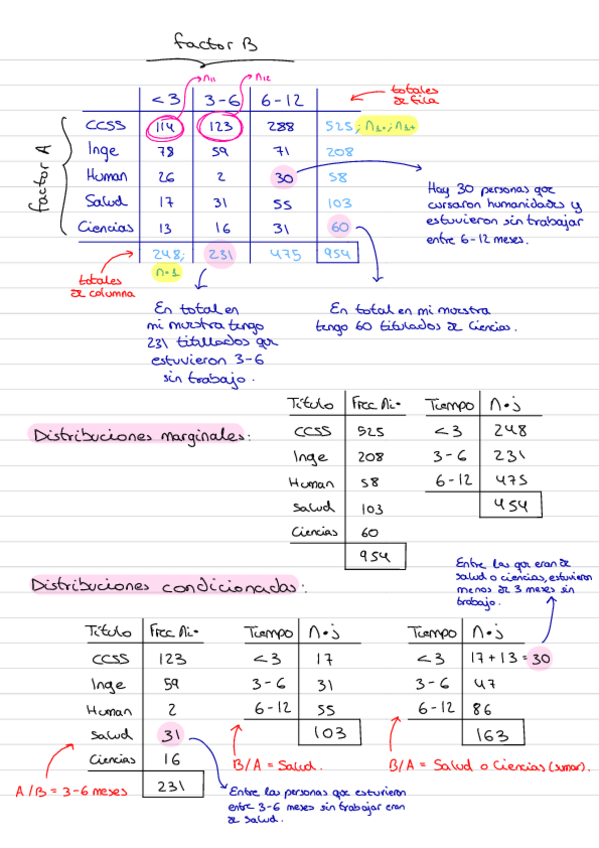 factor B
n₁₁ n₁₂
<3 3-6 6-12
totales de fila
factor A
CCSS 114 123 288 525; n₁•; n₁+
Inge 78 59 71 208
Human 26 2 30 58
Salud 17 31 55 103
Ciencias 13 16 31 60
248; 231 475 954
n•1
totales
de columna
Hay 30 personas que
cursaron humanidades y
estuvieron sin trabajar
entre 6-12 meses.
En total en
mi muestra tengo
231 titulados que
estuvieron 3-6
sin trabajo.
En total en mi muestra
tengo 60 titulados de Ciencias.
Distribuciones marginales:
Título Frec Ni•
CCSS 525
Inge 208
Human 58
Salud 103
Ciencias 60
954
Tiempo n•j
<3 248
3-6 231
6-12 475
454
Distribuciones condicionadas:
Entre las que eran de
salud o ciencias, estuvieron
menos de 3 meses sin
trabajo.
Título Frec Ni•
CCSS 123
Inge 59
Human 2
Salud 31
Ciencias 16
231
A/B = 3-6 meses
Entre las personas que estuvieron
entre 3-6 meses sin trabajar eran
de salud.
Tiempo n•j
<3 17
3-6 31
6-12 55
103
B/A = Salud.
Tiempo n•j
<3 17+13=30
3-6 47
6-12 86
163
B/A = Salud o Ciencias (sumar).